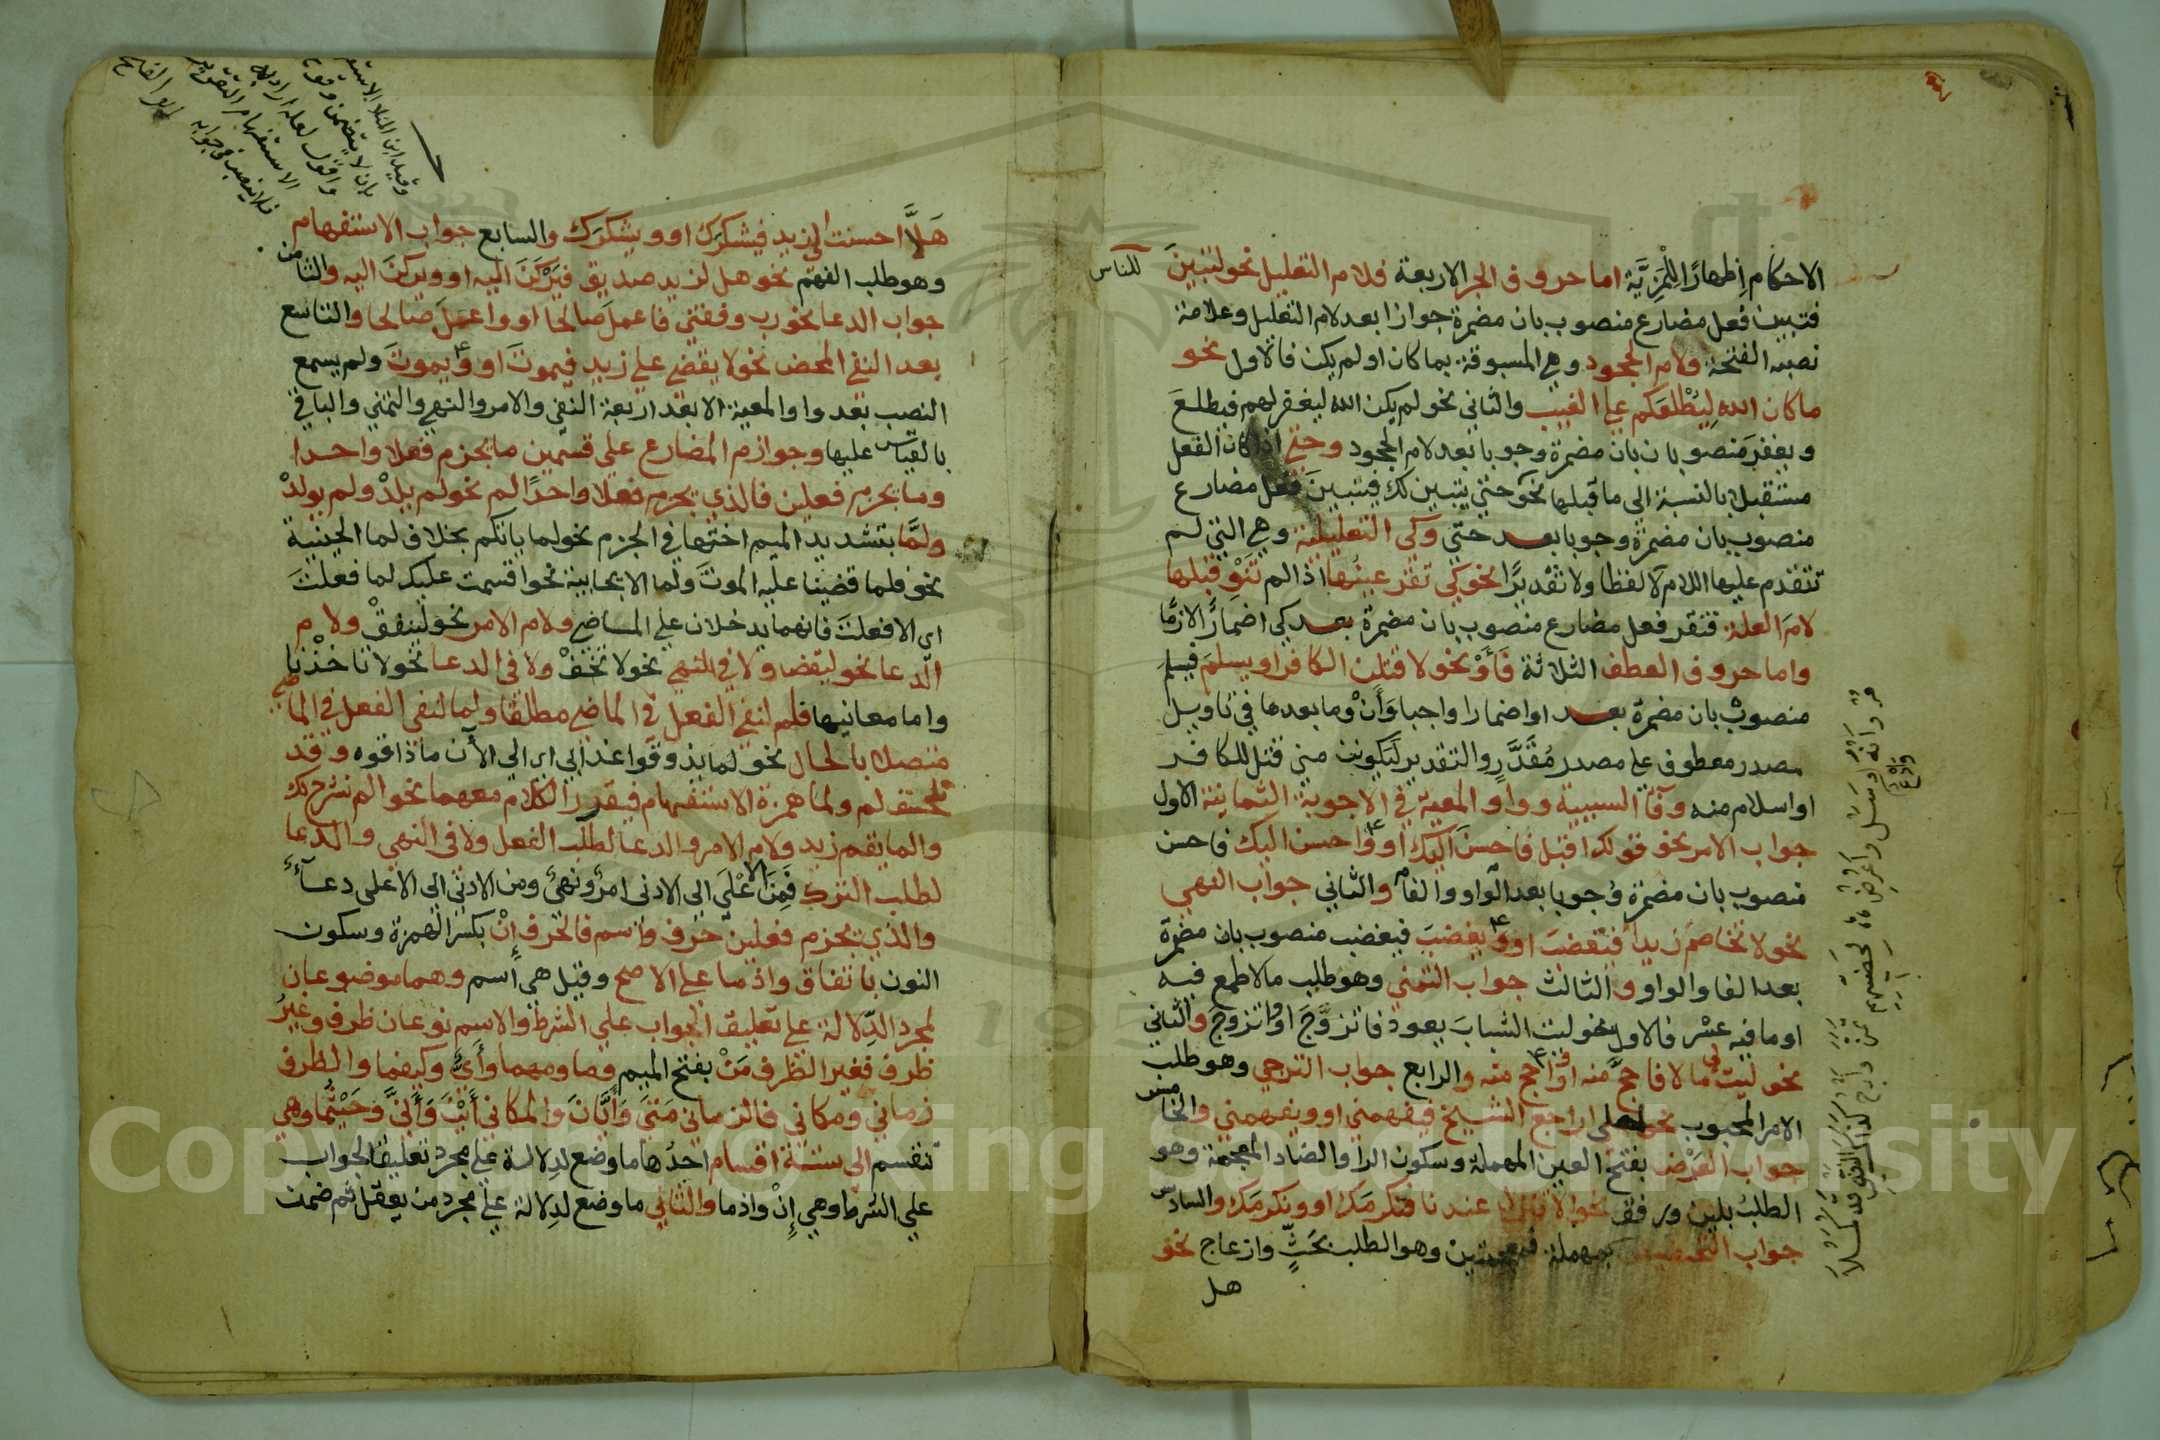 الاحكام اظهارًا للمَزِيَّة اما حروف الجر الاربعة فلام التعليل نحو لتبينَ للناس
فتبين فعل مضارع منصوب بان مضمرة جوازا بعد لام التعليل وعلامة
نصبه الفتحة ولام الجحود وهي المسبوقة بما كان او لم يكن فالاول نحو
ما كان الله ليُطْلعَكم على الغيب والثاني نحو لم يكن الله ليغفر لهم فيطلعَ
ويغفرَ منصوبان بان مضمرة وجوبا بعد لام الجحود وحتى اذا كان الفعل
مستقبلا بالنسبة الى ما قبلها نحو حتى يتبين لك فيتبينَ فعل مضارع
منصوب بان مضمرة وجوبا بعد حتى وكى التعليلية وهي التي لم
تتقدم عليها اللام لا لفظا ولا تقديرًا نحو كي تقر عينُها اذا لم تَنْوِ قبلها
لامَ العلة فتقر فعل مضارع منصوب بان مضمرة بعد كي اضمارًا لازمًا
واما حروف العطف الثلاثة فأَوْ نحو لاقتلن الكافر او يسلمَ فيسلم
منصوبٌ بان مضمرة بعد او اضمارا واجبا وَأَنْ وما بعدها في تاويل
مصدر معطوف على مصدر مُقَدَّرٍ والتقدير لَيَكونن مني قتل للكافر
او اسلام منه وفآ السببية وواو المعية في الاجوبة الثمانية الاول
جواب الامر نحو قولك اقبل فاحسنَ اليك او واحسن اليك فاحسن
منصوب بان مضمرة وجوبا بعد الواو والفا والثاني جواب النهي
نحو لا تخاصم زيدا فتغضبَ او ويغضبَ فيغضب منصوب بان مضمرة
بعد الفا والواو والثالث جواب التمني وهو طلب ما لا طمع فيه
او ما فيه عسْر فالاول نحو ليت الشبابَ يعود فاتزوَّجَ او واتزوجَ والثاني
نحو ليت لي مالا فاحجَّ منه او واحج منه والرابع جواب الترجي وهو طلب
الامر المحبوب نحو لعلى اراجع الشيخ فيفهمني او ويفهمني والخامس
جواب العَرْض بفتح العين المهملة وسكون الرا والضاد المعجمة وهو
الطلبُ بلين ورفق نحو الا تنزل عندنا فنكرمَك او ونكرمَك والسادس
جواب التحضيض بمهملة فمعجمتين وهو الطلب بحَثٍّ وازعاج نحو
هل
هَلاَّ احسنت الى زيد فيشكرَك او ويشكرَك والسابع جواب الاستفهام
وهو طلب الفهم نحو هل لزيد صديق فيَرْكَنَ اليه او ويركنَ اليه والثامن
جواب الدعا نحو رب وفقني فاعملَ صالحا او واعملَ صالحا والتاسع
بعد النفى المحض نحو لا يقضى على زيد فيموتَ او ويموتَ ولم يسمع
النصب بعد واو المعية الا بعد اربعة النفى والامر والنهي والتمني والباقي
بالقياس عليها وجوازم المضارع على قسمين ما يجزم فعلا واحدا
وما يجزم فعلين فالذي يجزم فعلا واحدًا لم نحو لم يلِدْ ولم يولدْ
ولمَّا بتشديد الميم اختها في الجزم نحو لما ياتكم بخلاف لما الحينية
نحو فلما قضينا عليه الموتَ ولما الايجابية نحو اقسمت عليك لما فعلتَ
اى الا فعلتَ فانهما يدخلان على الماضي ولام الامر نحو لينفقْ ولام
الدعا نحو ليقض ولا في النهي نحو لا تخَفْ ولا فى الدعا نحو لا تاخذْنا
واما معانيها فلم لنفى الفعل في الماضي مطلقا ولما لنفى الفعل في الماضي
متصلا بالحال نحو لما يذوقوا عذابى اى الى الآن ما ذاقوه وقد
تلحق لم ولما همزة الاستفهام فيقرر الكلام معهما نحو الم نشرح لك
والما يقم زيد ولام الامر والدعا لطلب الفعل ولا فى النهى والدعا
لطلب الترك فَمِنَ الاعْلَى الى الادنى امرٌ ونهىٌ ومن الادنى الى الاعلى دعآءٌ
والذي يجزم فعلين حرف واسم فالحرف إِنْ بكسر الهمزة وسكون
النون باتفاق واذما على الاصح وقيل هى اسم وهما موضوعان
لمجرد الدِّلالة على تعليق الجواب على الشرط والاسم نوعان ظرف وغيرُ
ظرف فغير الظرف مَنْ بفتح الميم وما ومهما وأَيٌّ وكيفما والظرف
زماني ومكاني فالزماني مَتىَ وَأَيَّانَ والمكاني أَيْنَ وَأَنىَّ وحَيْثُما وهي
تنقسم الى ستة اقسام احدُها ما وضع لدلالة على مجرد تعليق الجواب
على الشرط وهي إِنْ واذما والثاني ما وضع لدلالة على مجرد من يعقل ثم ضمنت